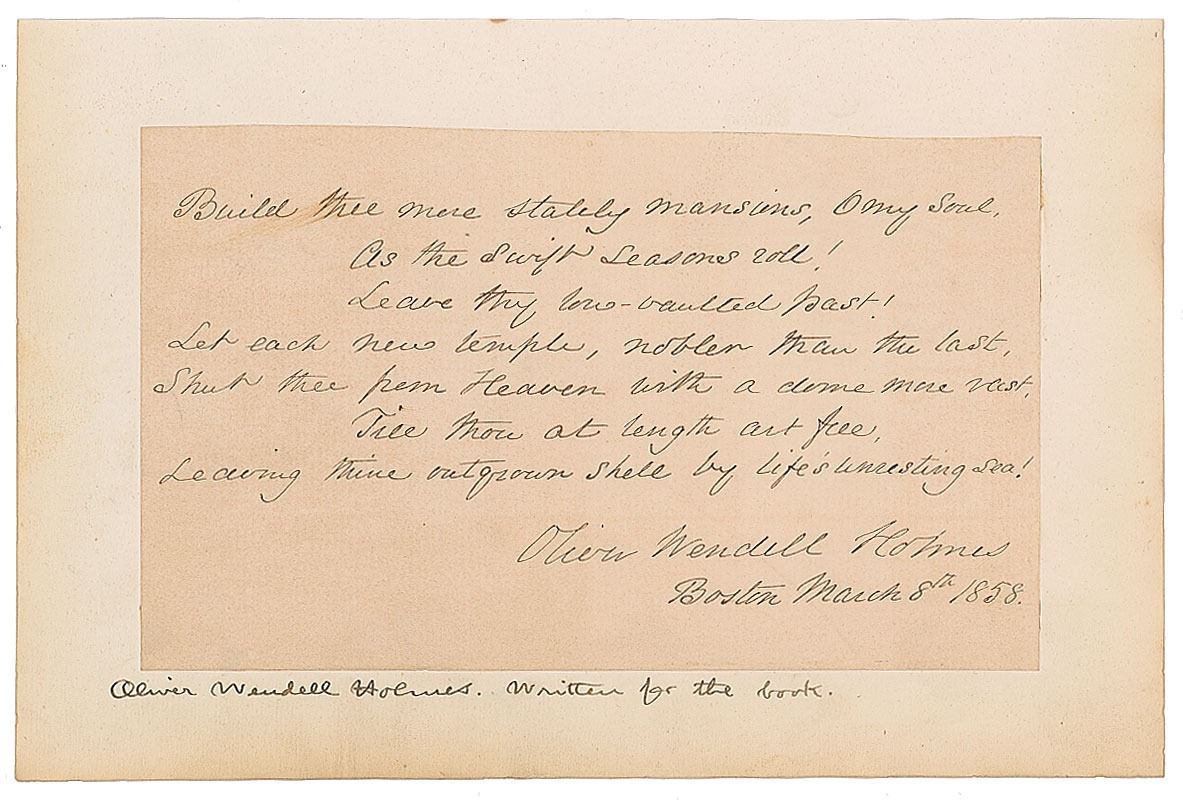 Build thee more stately mansions, O my Soul,
As the Swift Seasons roll!
Leave thy low-vaulted past!
Let each new temple, nobler than the last,
Shut thee from Heaven with a dome more vast,
Till thou at length art free,
Leaving thine outgrown shell by life's unresting sea!
Oliver Wendell Holmes
Boston March 8th 1858.
Oliver Wendell Holmes. Written for the book.